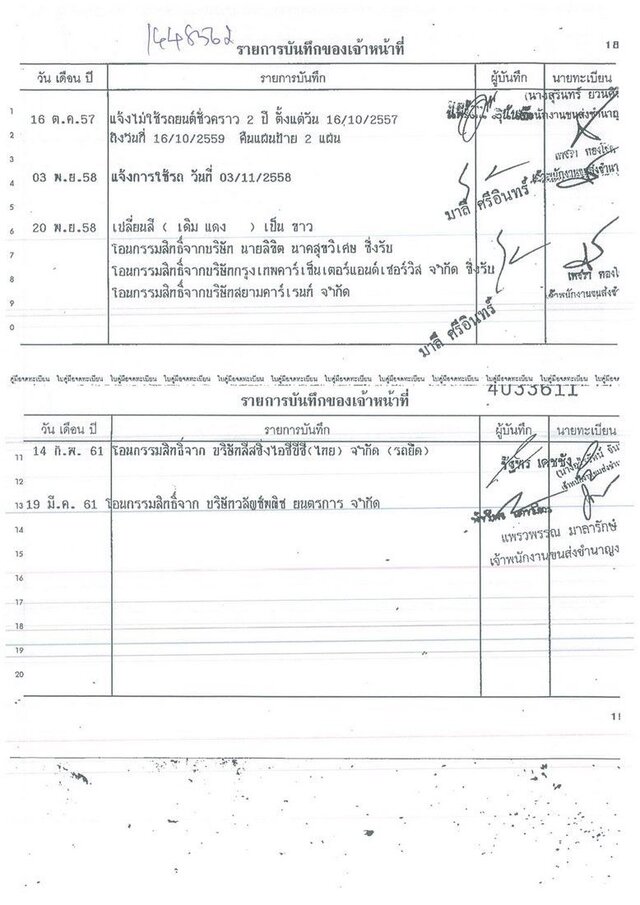 1448562
รายการบันทึกของเจ้าหน้าที่
18
วัน เดือน ปี รายการบันทึก ผู้บันทึก นายทะเบียน
(นางสุรินทร์ ยวน
1 16 ต.ค.57 แจ้งไม่ใช้รถยนต์ชั่วคราว 2 ปี ตั้งแต่วัน 16/10/2557
2 ถึงวันที่ 16/10/2559 คืนแผ่นป้าย 2 แผ่น
3
4 03 พ.ย.58 แจ้งการใช้รถ วันที่ 03/11/2558
มาลี ศรีอินทร์
5
6 20 พ.ย.58 เปลี่ยนสี ( เดิม แดง ) เป็น ขาว
7 โอนกรรมสิทธิ์จากบริษัท นายลิขิต นาคสุขวิเศษ ซึ่งรับ
8 โอนกรรมสิทธิ์จากบริษัทกรุงเทพคาร์เซ็นเตอร์แอนด์เซอร์วิส จำกัด ซึ่งรับ
9 โอนกรรมสิทธิ์จากบริษัทสยามคาร์เรนท์ จำกัด
0
มาลี ศรีอินทร์
คู่มือจดทะเบียน ใบคู่มือจดทะเบียน ใบคู่มือจดทะเบียน ใบคู่มือจดทะเบียน ใบคู่มือจดทะเบียน ใบคู่มือจดทะเบียน ใบคู่มือจดทะเบียน ใบคู่มือจดทะเบียน ใบคู่มือจดทะเบียน
4033611
รายการบันทึกของเจ้าหน้าที่
วัน เดือน ปี รายการบันทึก ผู้บันทึก นายทะเบียน
11 14 ก.พ. 61 โอนกรรมสิทธิ์จาก บริษัทลีสซิ่งไอซีบีซี(ไทย) จำกัด (รถยึด)
12
13 19 มี.ค. 61 โอนกรรมสิทธิ์จาก บริษัทวลัญช์พณิช ยนตรการ จำกัด
14
แพรวพรรณ มาลารักษ์
15
เจ้าพนักงานขนส่งชำนาญง
16
17
18
19
20